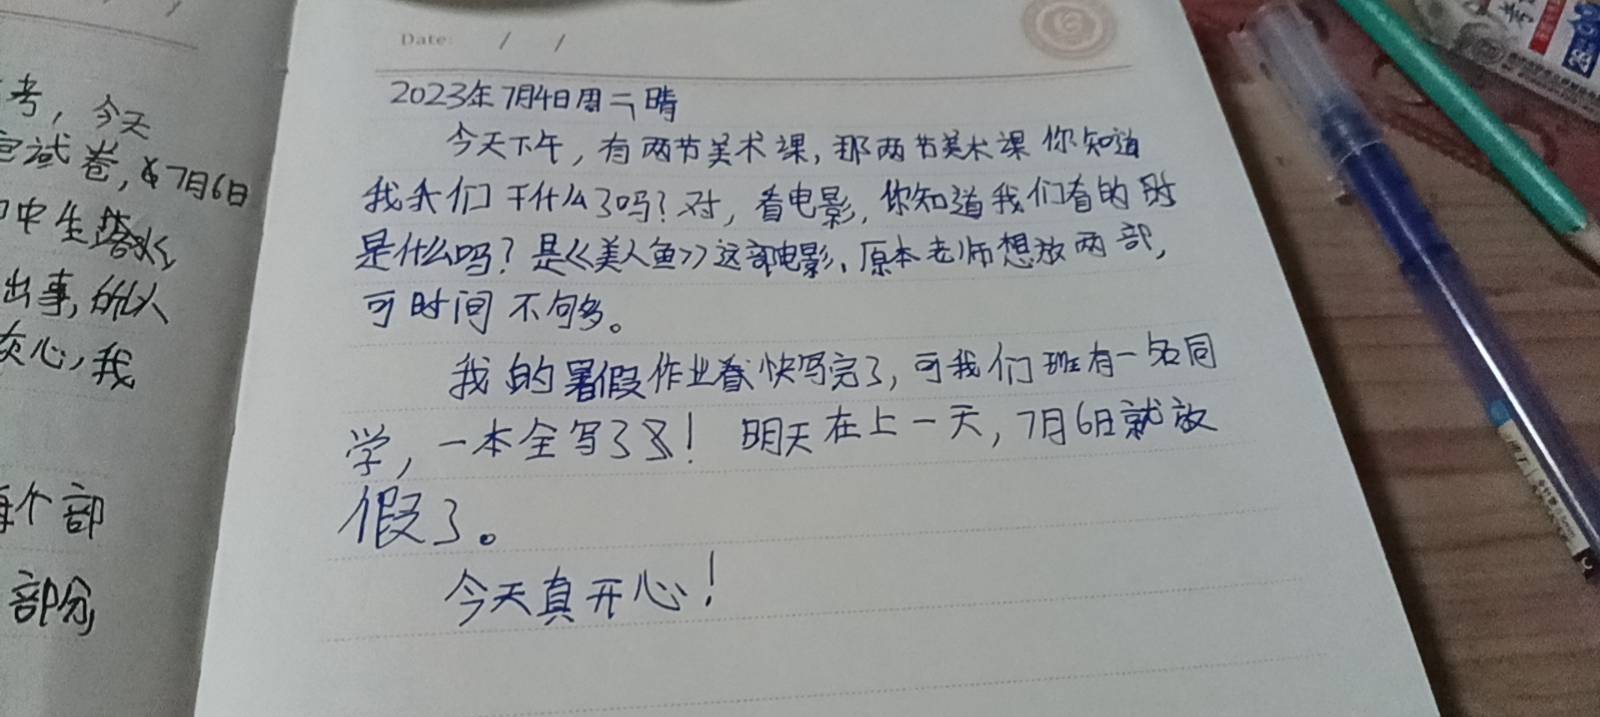 考，今天
试卷，7月6日
中生
出事，的人
灰心，我
每个部
部分
Date: / /
2023年7月4日周二晴
今天下午，有两节美术课，那两节美术课你知道
我我们干什么了吗？对，看电影，你知道我们看的时
是什么吗？是《美人鱼》这部电影，原本老师想放两部，
可时间不够多。
我的暑假作业看快写完了，可我们班有一名同
学，一本全写了！明天在上一天，7月6日就放
假了。
今天真开心！